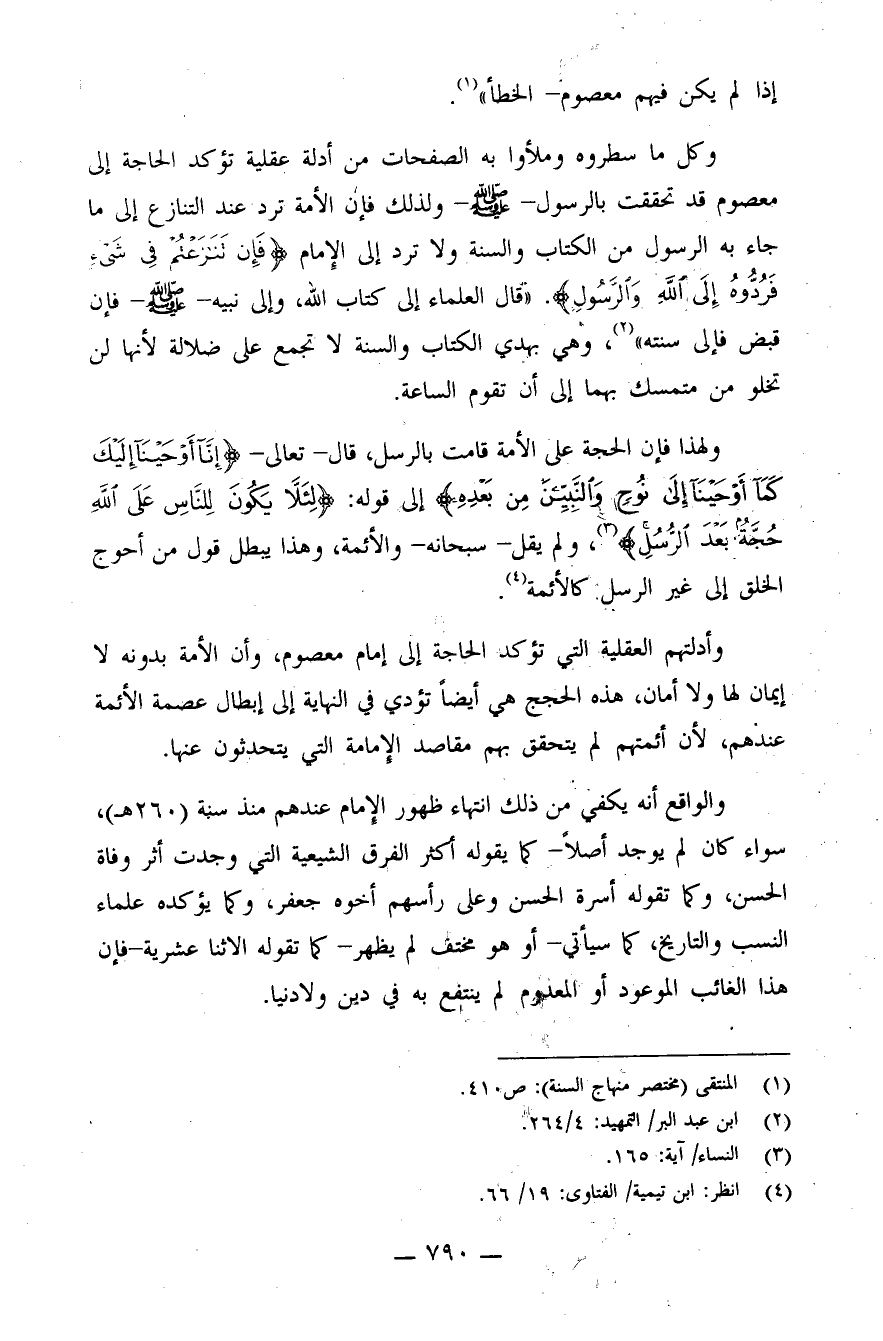 إذا لم يكن فيهم معصوم– الخطأ»(١).
وكل ما سطروه وملأوا به الصفحات من أدلة عقلية تؤكد الحاجة إلى
معصوم قد تحققت بالرسول– ﷺ– ولذلك فإن الأمة ترد عند التنازع إلى ما
جاء به الرسول من الكتاب والسنة ولا ترد إلى الإمام ﴿فَإِن تَنَٰزَعۡتُمۡ فِى شَىۡءٖ
فَرُدُّوهُ إِلَى ٱللَّهِ وَٱلرَّسُولِ﴾. «قال العلماء إلى كتاب الله، وإلى نبيه– ﷺ– فإن
قبض فإلى سنته»(٢)، وهي بهدي الكتاب والسنة لا تجمع على ضلالة لأنها لن
تخلو من متمسك بهما إلى أن تقوم الساعة.
ولهذا فإن الحجة على الأمة قامت بالرسل، قال– تعالى– ﴿إِنَّآ أَوۡحَيۡنَآ إِلَيۡكَ
كَمَآ أَوۡحَيۡنَآ إِلَىٰ نُوحٖ وَٱلنَّبِيِّـۧنَ مِن بَعۡدِهِ﴾ إلى قوله: ﴿لِئَلَّا يَكُونَ لِلنَّاسِ عَلَى ٱللَّهِ
حُجَّةُۢ بَعۡدَ ٱلرُّسُلِ﴾(٣)، ولم يقل– سبحانه– والأئمة، وهذا يبطل قول من أحوج
الخلق إلى غير الرسل كالأئمة(٤).
وأدلتهم العقلية التي تؤكد الحاجة إلى إمام معصوم، وأن الأمة بدونه لا
إيمان لها ولا أمان، هذه الحجج هي أيضاً تؤدي في النهاية إلى إبطال عصمة الأئمة
عندهم، لأن أئمتهم لم يتحقق بهم مقاصد الإمامة التي يتحدثون عنها.
والواقع أنه يكفي من ذلك انتهاء ظهور الإمام عندهم منذ سنة (٢٦٠هـ)،
سواء كان لم يوجد أصلاً– كما يقوله أكثر الفرق الشيعية التي وجدت أثر وفاة
الحسن، وكما تقوله أسرة الحسن وعلى رأسهم أخوه جعفر، وكما يؤكده علماء
النسب والتاريخ، كما سيأتي– أو هو مختف لم يظهر– كما تقوله الاثنا عشرية–فإن
هذا الغائب الموعود أو المعدوم لم ينتفع به في دين ولادنيا.
(١) المنتقى (مختصر منهاج السنة): ص٤١٠.
(٢) ابن عبد البر/ التمهيد: ٢٦٤/٤.
(٣) النساء/ آية: ١٦٥.
(٤) انظر: ابن تيمية/ الفتاوى: ١٩/ ٦٦.
— ٧٩٠ —